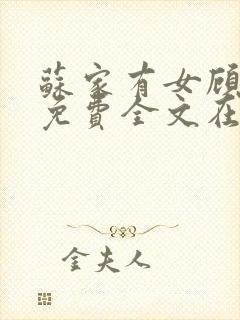 蘇家有女顧
免費全文在
金夫人